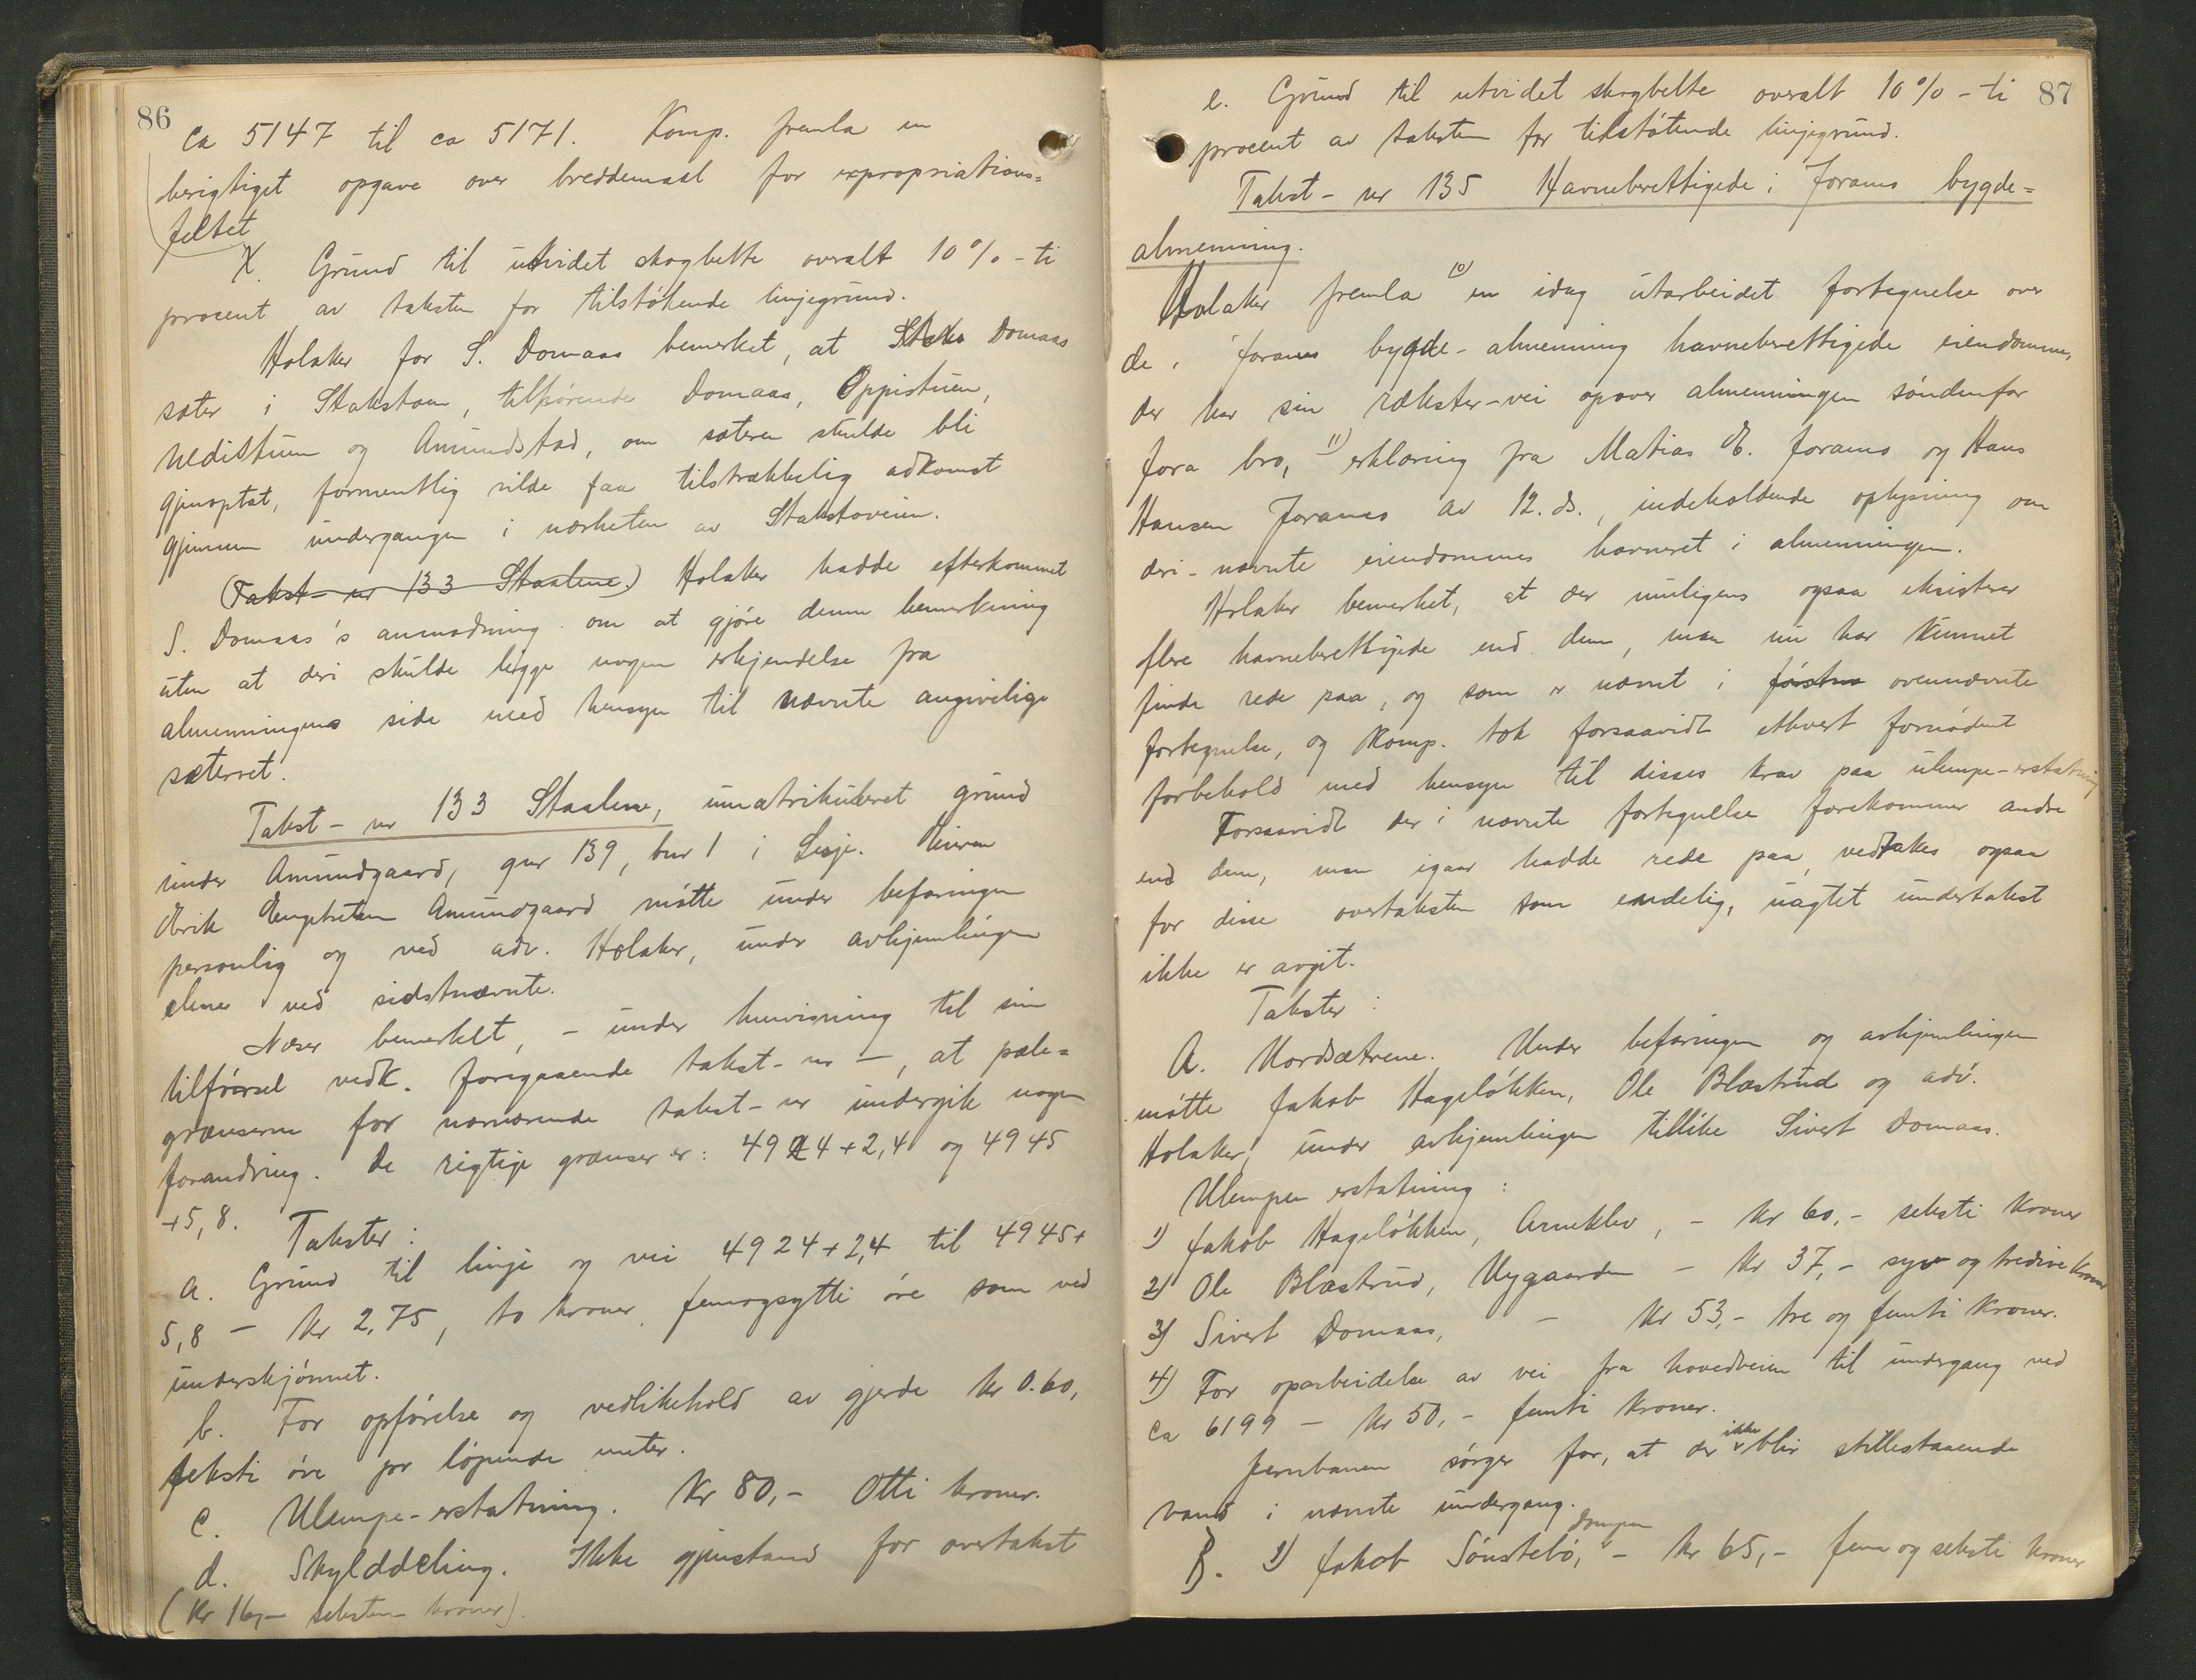 86
ca 5147 til ca 5171. Komp. fremla en
berigtiget opgave over breddemaal for expropriations=
feltet
X. Grund til utvidet skogbelte overalt 10% - ti
procent av taksten for tilstøtende linjegrund.
Holaker for S. Domaas bemerket, at Domaas
sæter i Stakstoen, tilhørende Domaas, Oppistuen,
Nedistuen og Amundstad, om sæteren skulde bli
gjenoptat, formentlig vilde faa tilstrækkelig adkomst
gjennem undergangen i nærheten av Stakstoveien.
(Takst- nr 133 Staalene.) Holaker hadde efterkommet
S. Domaas's anmodning om at gjøre denne bemerkning
uten at deri skulde ligge nogen erkjendelse fra
almenningens side med hensyn til nævnte angivelige
sæterret.
Takst- nr 133 Staalene, umatrikuleret grund
under Amundgaard, gnr 139, bnr 1 i Lesje. Eieren
Erik Engebretsen Amundgaard møtte under befaringen
personlig og ved adv. Holaker, under avhjemlingen
alene ved sidstnævnte.
Næser bemerket, - under henvisning til sin
tilførsel vedk. foregaaende takst- nr -, at pæle=
grænserne for nærværende takst- nr undergik nogen
forandring. De rigtige grænser er: 4924+2,4 og 4945
+5,8.
Takster:
a. Grund til linje og vei 4924+2,4 til 4945+
5,8 - kr 2,75, to kroner femogsytti øre som ved
underskjønnet.
b. For opførelse og vedlikehold av gjerde kr 0.60,
seksti øre pr løpende meter.
c. Ulempe-erstatning. Kr 80,- Otti kroner.
d. Skylddeling. Ikke gjenstand for overtakst
(kr 16,- seksten kroner).
87
e. Grund til utvidet skogbelte overalt 10% - ti
procent av taksten for tilstøtende linjegrund.
Takst- nr 135 Havneberettigede i Joramo bygde=
almenning.
Holaker fremla 10) en idag utarbeidet fortegnelse over
de i Joramo bygde- almenning havneberettigede eiendomme,
der har sin rækster-vei opover almenningen søndenfor
Jora bro, 11) erklæring fra Matias E. Joramo og Hans
Hansen Joramo av 12. ds., indeholdende oplysning om
deri- nævnte eiendommes havneret i almenningen.
Holaker bemerket, at der muligens ogsaa eksisterer
flere havneberettigede end dem, man nu har kunnet
finde rede paa, og som er nævnt i ovennævnte
fortegnelse, og Komp. tok forsaavidt ethvert fornødent
forbehold med hensyn til disses krav paa ulempe-erstatning
Forsaavidt der i nævnte fortegnelse forekommer andre
end dem, man igaar hadde rede paa, vedtakes ogsaa
for disse overtaksten som endelig, uagtet undertakst
ikke er avgit.
Takster:
A. Nordsætrene. Under befaringen og avhjemlingen
møtte Jakob Hageløkken, Ole Blæstrud og adv.
Holaker, under avhjemlingen tillike Sivert Domaas.
Ulempe erstatning:
1) Jakob Hageløkken, Arneklev, - kr 60,- seksti kroner
2) Ole Blæstrud, Nygaarden - kr 37,- syv og tredive kroner
3) Sivert Domaas, - kr 53,- tre og femti kroner.
4) For oparbeidelse av vei fra hovedveien til undergang ved
ca 6199 - kr 50,- femti kroner.
Jernbanen sørger for, at der ikke blir stillestaaende
vand i nævnte undergang.
B. 1) Jakob Sønstebø, - kr 65,- fem og seksti kroner